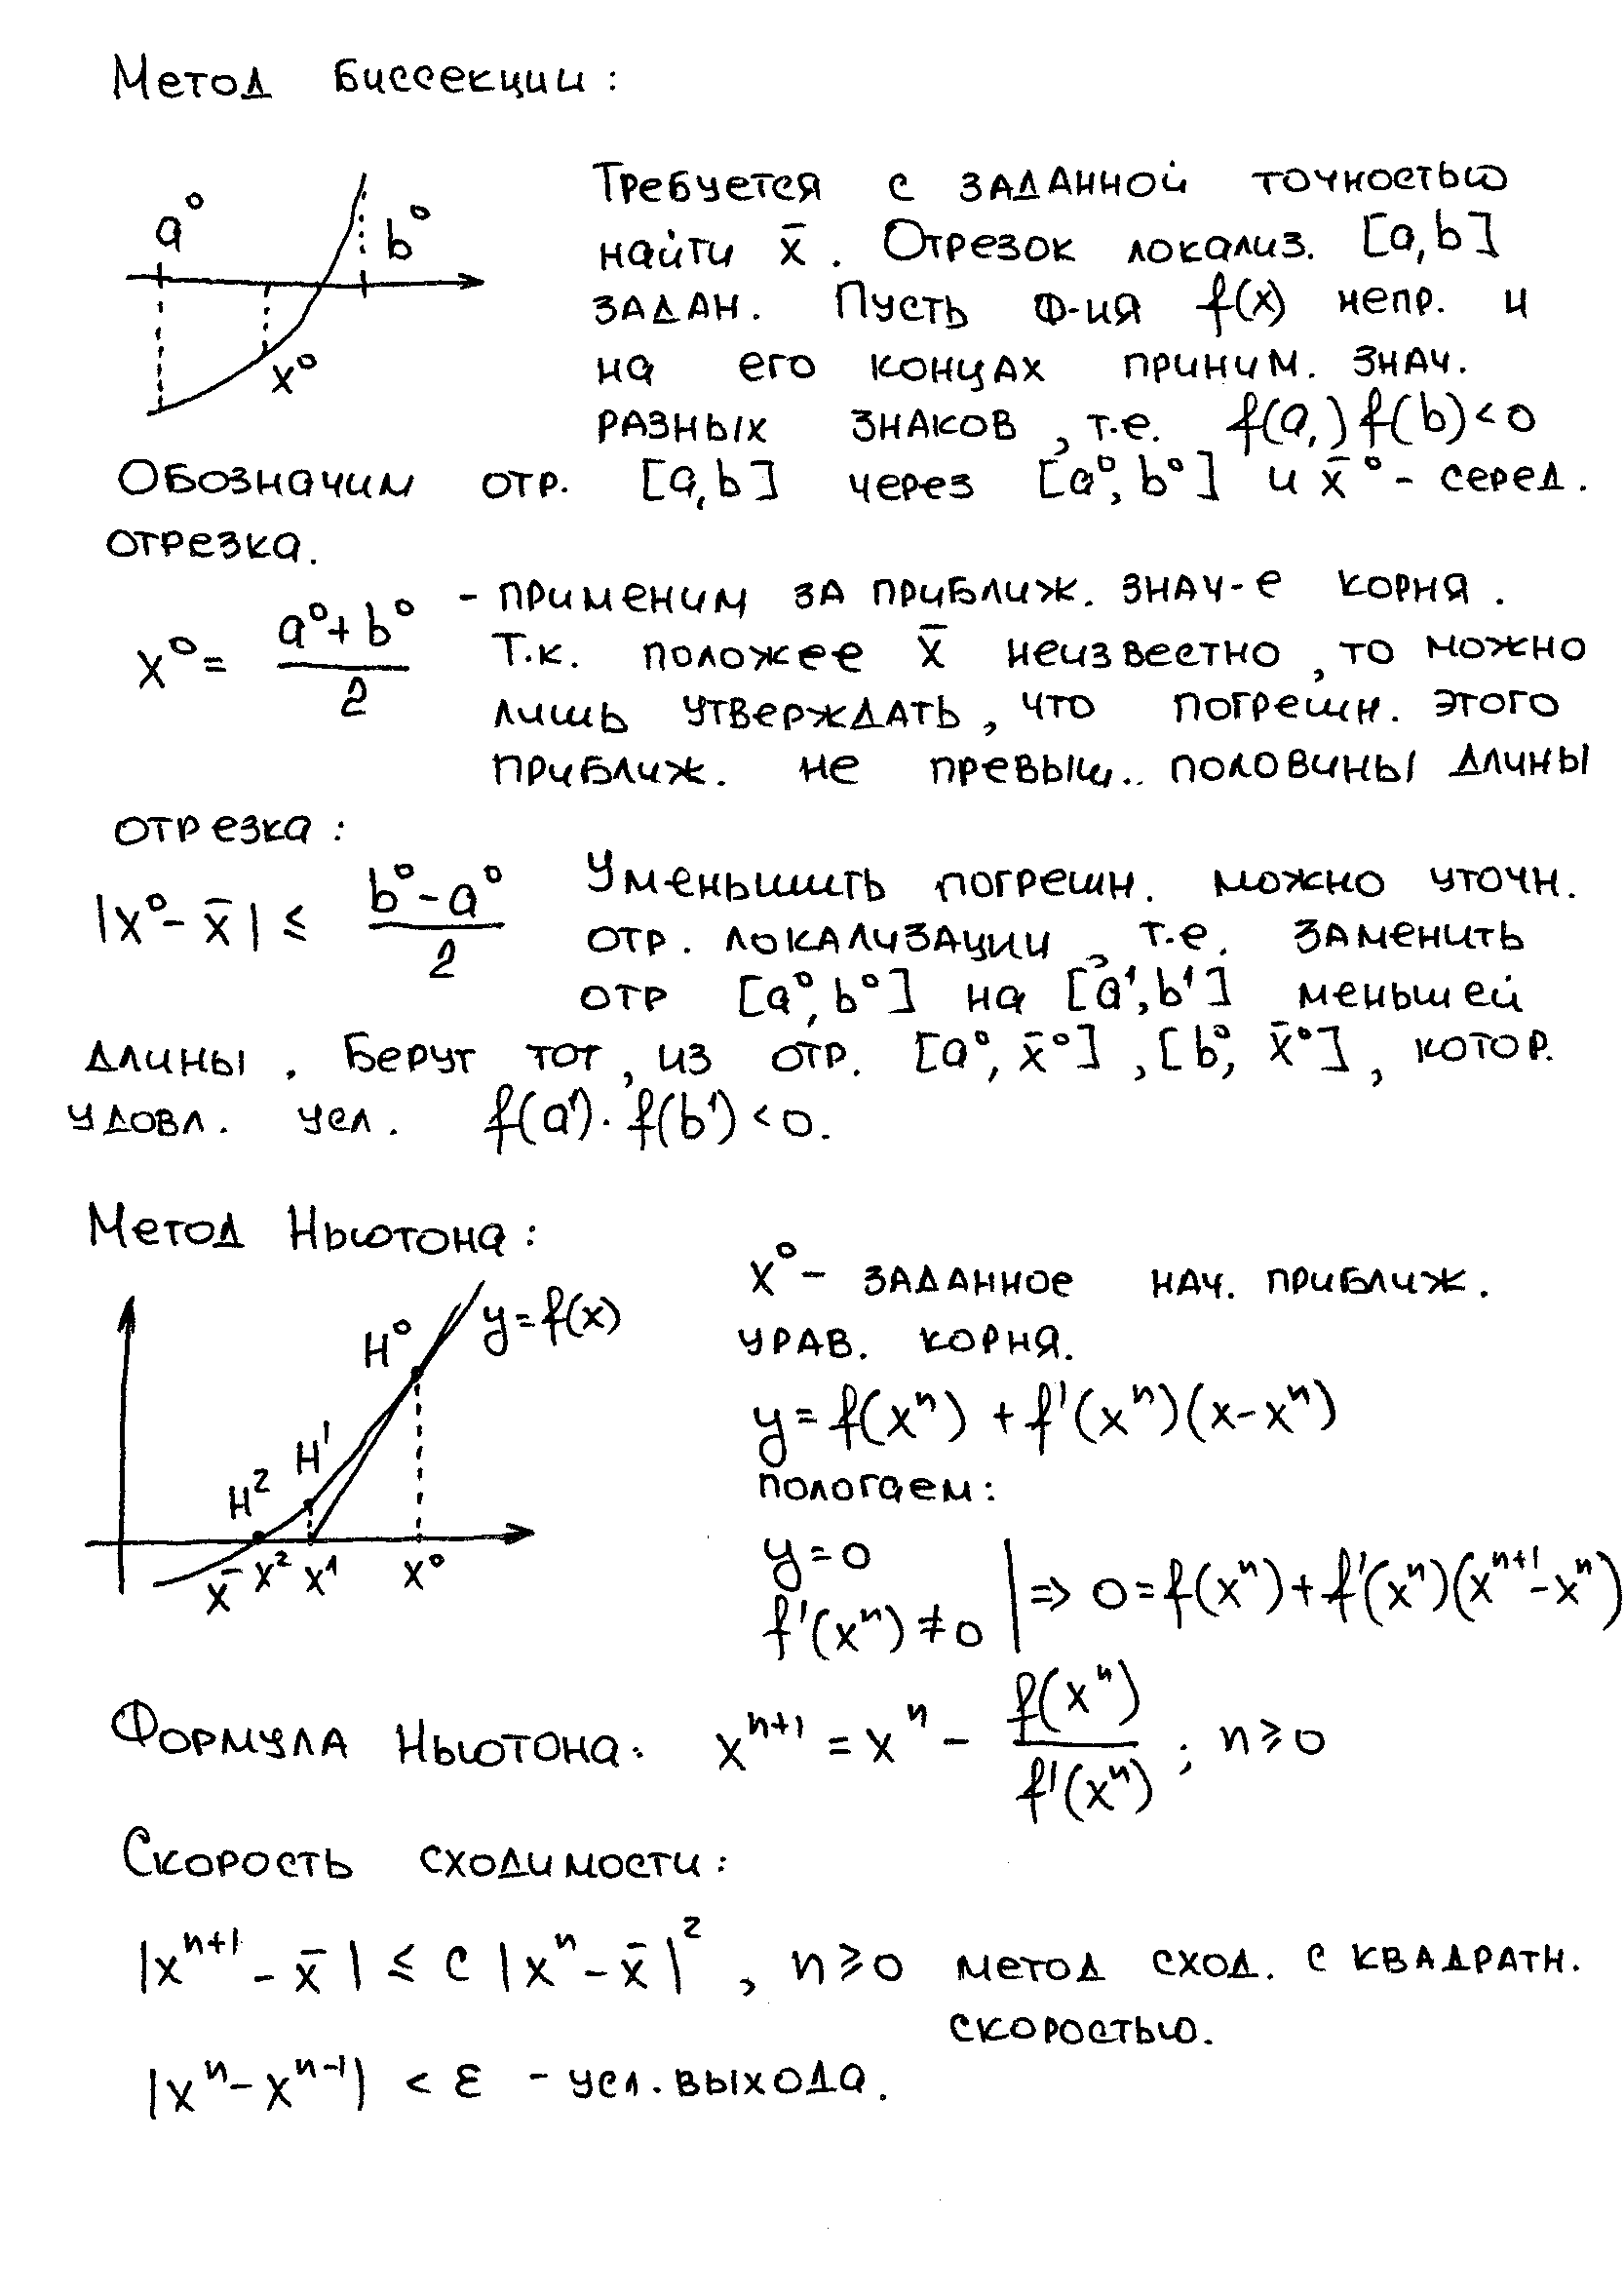 Метод Биссекции:
Требуется с заданной точностью
a⁰ b⁰ найти x̄. Отрезок локализ. [a,b]
задан. Пусть ф-ия f(x) непр. и
x⁰ на его концах приним. знач.
разных знаков, т.е. f(a,) f(b)<0
Обозначим отр. [a,b] через [a⁰,b⁰] и x̄⁰ - серед.
отрезка.
x⁰ = (a⁰+b⁰)/2 - применим за приближ. знач-е корня.
Т.к. положее x̄ неизвестно, то можно
лишь утверждать, что погрешн. этого
приближ. не превыш.. половины длины
отрезка:
|x⁰- x̄| ≤ (b⁰-a⁰)/2 Уменьшить погрешн. можно уточн.
отр. локализации, т.е. заменить
отр [a⁰,b⁰] на [a¹,b¹] меньшей
длины. Берут тот, из отр. [a⁰, x̄⁰], [b⁰, x̄⁰], котор.
удовл. усл. f(a¹)·f(b¹)<0.
Метод Ньютона:
x⁰- заданное нач. приближ.
H⁰ y=f(x) урав. корня.
H¹ y=f(xⁿ)+f'(xⁿ)(x-xⁿ)
H² пологаем:
x̄ x² x¹ x⁰
y=0
f'(xⁿ)≠0 | => 0=f(xⁿ)+f'(xⁿ)(xⁿ⁺¹-xⁿ)
Формула Ньютона: xⁿ⁺¹=xⁿ- f(xⁿ)/f'(xⁿ); n≥0
Скорость сходимости:
|xⁿ⁺¹- x̄| ≤ C |xⁿ- x̄|², n≥0 метод сход. с квадратн.
скоростью.
|xⁿ-xⁿ⁻¹| < ε - усл. выхода.